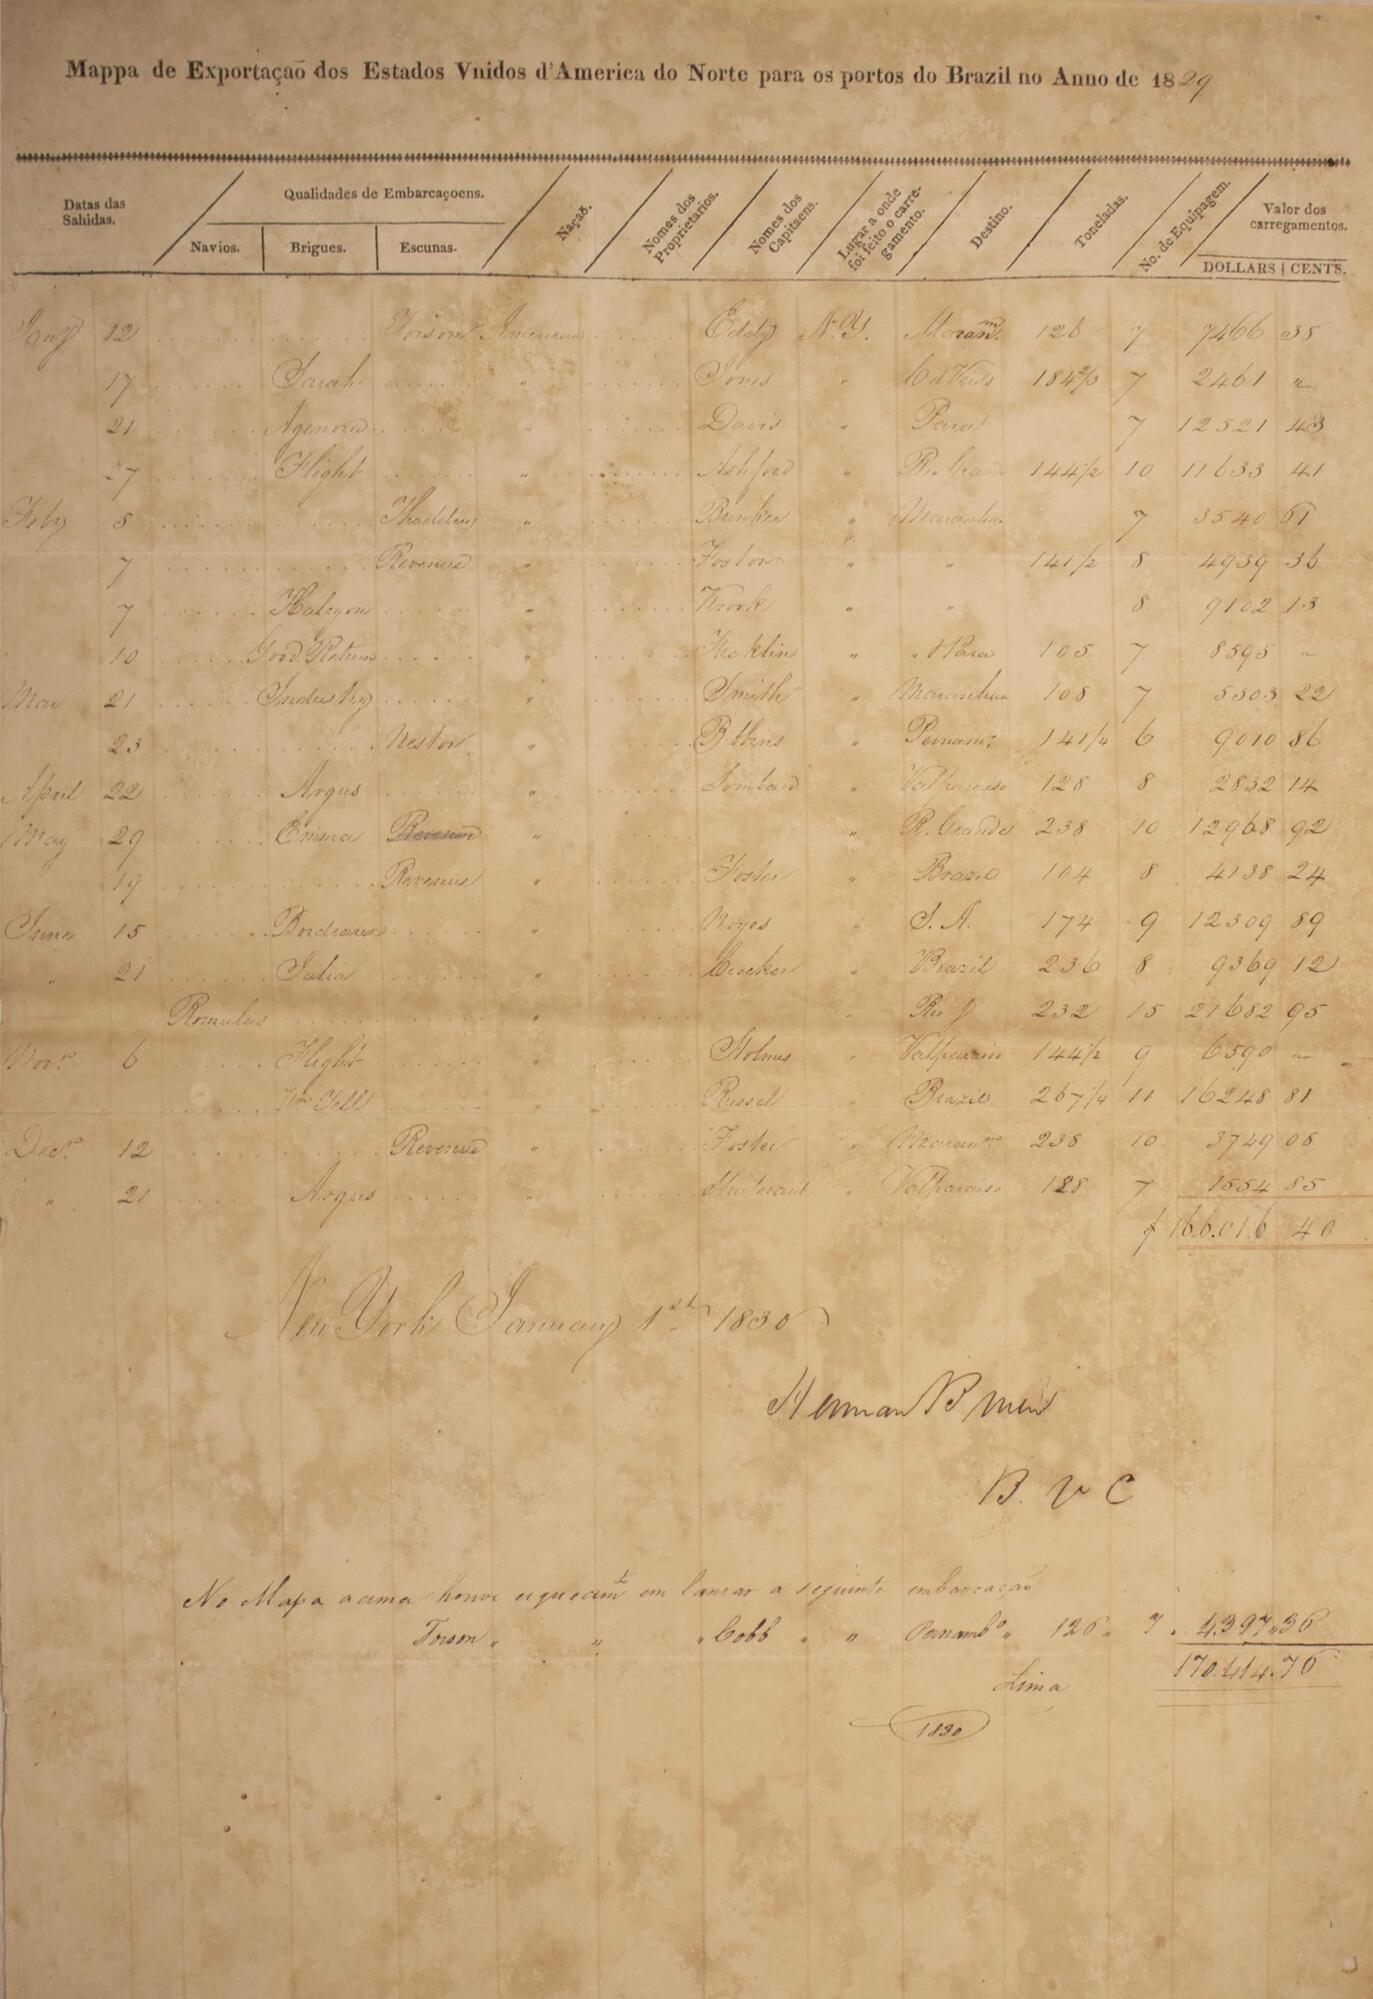 Mappa de Exportaçaõ dos Estados Vnidos d'America do Norte para os portos do Brazil no Anno de 1829
Datas das Sahidas. Qualidades de Embarcaçoens. Navios. Brigues. Escunas. Naçaõ. Nomes dos Proprietarios. Nomes dos Capitaens. Lugar a onde foi feito o carregamento. Destino. Toneladas. No. de Equipagem. Valor dos carregamentos. DOLLARS CENTS.
Jany 12 American Eddy N.Y. 126 7 7466 38
17 Sarah " Jones " 184 2/3 7 2461 "
21 Agenora " Davis " Para 7 12521 43
27 Flight " Ashford " Rio Grande 144 1/2 10 11633 41
Feby 5 Thaddeus " Bunker " Maranham 7 3540 61
7 Revenue " Foster " " 141 1/2 8 4939 36
7 Halcyon " Krook " " 8 9102 13
10 Good Return " " " Para 105 7 8595 "
Mar 21 Industry " Smith " Maranham 108 7 5303 22
23 Nestor " " Pernam. 141 1/4 6 9010 86
April 22 Argus " Lombard " Valparaiso 128 8 2832 14
May 29 Emma Revenue " " R. Grande 238 10 12968 92
19 Revenue " Foster " Brazil 104 8 4138 24
June 15 Bordeaux " Noyes " S. A. 174 9 12309 89
" 21 Julia " Crocker " Brazil 236 8 9369 12
Romulus " " Rio J 232 15 21682 95
Novr. 6 Flight " Holmes " Valparaiso 144 1/2 9 6590 "
Wm Tell " Russel " Brazil 267 1/4 11 16248 81
Decr. 12 Revenue " Foster " Maranm. 238 10 3749 08
" 21 Argus " " Valparaiso 128 7 1554 85
$ 166.016 40
New York January 1st 1830
Herman
B. V C
No Mapa acima houve esquecimto em lansar a seguinte embarcação
Toison " " " Cobb " " Pernambo " 126 " 7 " 4.397 " 36
170.414.76
Lima
1830